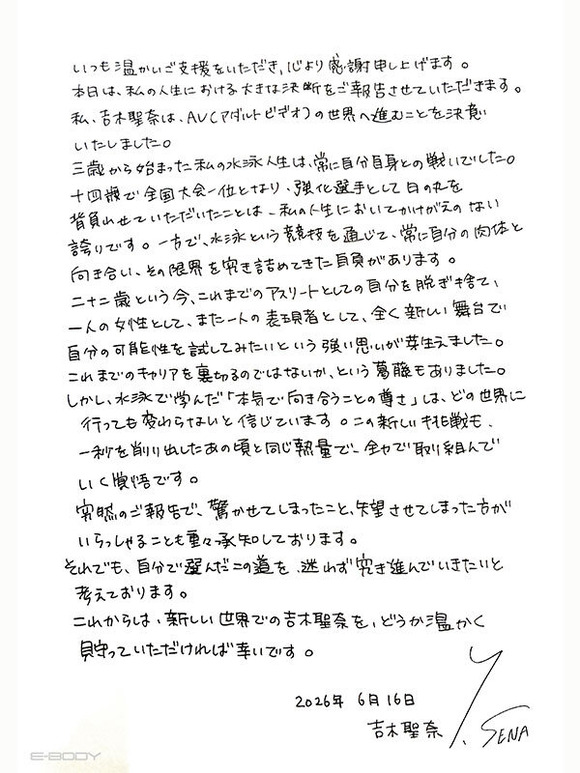 いつも温かいご支援をいただき、心より感謝申し上げます。
本日は、私の人生における大きな決断をご報告させていただきます。
私、吉木聖奈は、AV(アダルトビデオ)の世界へ進むことを決意
いたしました。
三歳から始まった私の水泳人生は、常に自分自身との戦いでした。
十四歳で全国大会一位となり、強化選手として日の丸を
背負わせていただいたことは、私の人生においてかけがえのない
誇りです。一方で、水泳という競技を通じて、常に自分の肉体と
向き合い、その限界を突き詰めてきた自負があります。
二十二歳という今、これまでのアスリートとしての自分を脱ぎ捨て、
一人の女性として、また一人の表現者として、全く新しい舞台で
自分の可能性を試してみたいという強い思いが芽生えました。
これまでのキャリアを裏切るのではないか、という葛藤もありました。
しかし、水泳で学んだ「本気で向き合うことの尊さ」は、どの世界に
行っても変わらないと信じています。この新しい挑戦も、
一秒を削り出したあの頃と同じ熱量で、全力で取り組んで
いく覚悟です。
突然のご報告で、驚かせてしまったこと、失望させてしまった方が
いらっしゃることも重々承知しております。
それでも、自分で選んだこの道を、迷わず突き進んでいきたいと
考えております。
これからは、新しい世界での吉木聖奈を、どうか温かく
見守っていただければ幸いです。
2026年 6月16日
吉木聖奈 Y. SENA
E-BODY